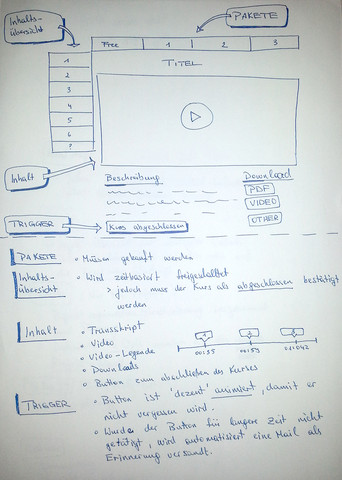 Inhalts-
übersicht
PAKETE
Free 1 2 3
TITEL
1
2
3
4
5
6
?
Inhalt
Beschreibung
Download
PDF
VIDEO
OTHER
TRIGGER
Kurs abgeschlossen
PAKETE
Müssen gekauft werden
Inhalts-
übersicht
Wird zeitbasiert freigeschaltet
> jedoch muss der Kurs als abgeschlossen bestätigt
werden
Inhalt
Transskript
Video
Video-Legende
Downloads
Button zum abschließen des Kurses
00:55
TRIGGER
Button ist "dezent" animiert, damit er
nicht vergessen wird.
Wurde der Button für längere Zeit nicht
getätigt, wird automatisiert eine Mail als
Erinnerung versandt.